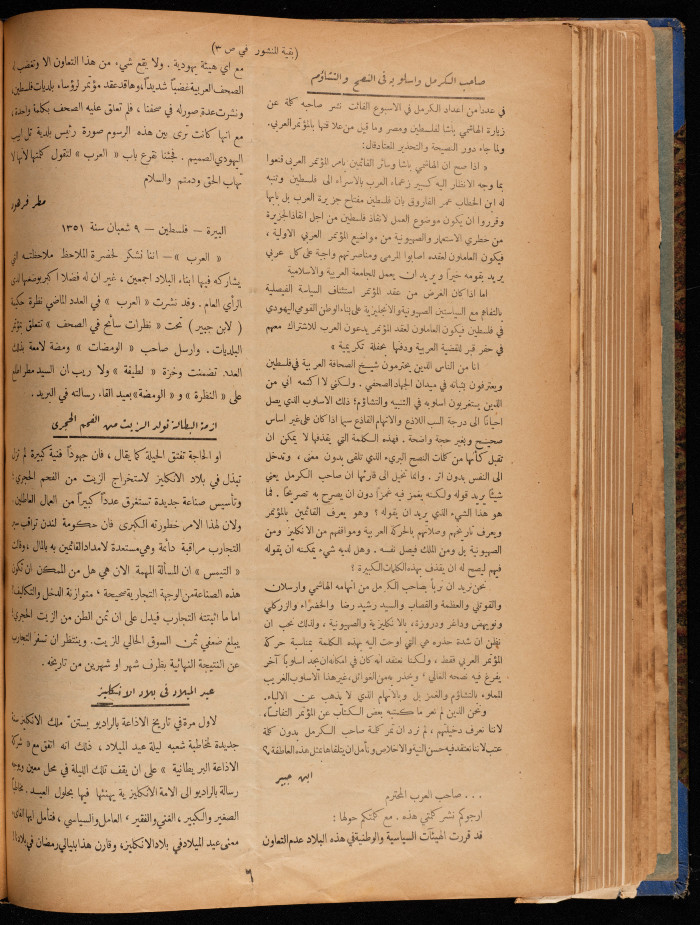 (بقية المنشور في ص ٣)
صاحب الكرمل واسلوبه فى النصح والتشاؤم
في عدد من اعداد الكرمل في الاسبوع الفائت نشر صاحبه كلمة عن
زيارة الهاشمي باشا لفلسطين ومصر وما قيل من علاقتها بالمؤتمر العربي.
ولما جاء دور النصيحة والتحذير المعتاد قال:
« اذا صح ان الهاشمي باشا وسائر القائمين بامر المؤتمر العربي قنعوا
بما وجه الانتظار اليه كبير زعماء العرب بالاسراء الى فلسطين وتنبه
له ابن الخطاب عمر الفاروق بان فلسطين مفتاح جزيرة العرب بل بابها
وقرروا ان يكون موضوع العمل لانقاذ فلسطين من اجل انقاذ الجزيرة
من خطري الاستعمار والصهيونية من مواضيع المؤتمر العربي الاولية ،
فيكون العاملون لعقده اصابوا المرمى ومناصرتهم واجبة على كل عربي
يريد بقومه خيراً ويريد ان يعمل للجامعة العربية والاسلامية
اما اذا كان الغرض من عقد المؤتمر استئناف السياسة الفيصلية
بالتفاهم مع السياستين الصهيونية والانجليزية على بناء الوطن القومي اليهودي
في فلسطين فيكون العاملون لعقد المؤتمر يدعون العرب للاشتراك معهم
في حفر قبر للقضية العربية ودفنها بحفلة تكريمية »
انا من الناس الذين يحترمون شيخ الصحافة العربية في فلسطين
ويعترفون بثباته في ميدان الجهاد الصحفي . ولكني لا اكتمه اني من
الذين يستغربون اسلوبه في التنبيه والتشاؤم؛ ذلك الاسلوب الذي يصل
احياناً الى درجة السب اللاذع والاتهام القاذع سيما اذا كان على غير اساس
صحيح وبغير حجة واضحة . فهذه الكلمة التي يقذفها لا يمكن ان
تقبل كأنها من كلمات النصح البريء الذي تلقى بدون معنى ، وتدخل
الى النفس بدون اثر . وانما تخيل الى قارئها ان صاحب الكرمل يعني
شيئاً يريد قوله ولكنه يغمز فيه غمزاً دون ان يصرح به تصريحاً . فما
هو هذا الشيء الذي يريد ان يقوله ؟ وهو يعرف القائمين بالمؤتمر
ويعرف تاريخهم وصلاتهم بالحركة العربية ومواقفهم من الانكليز ومن
الصهيونية بل ومن الملك فيصل نفسه . وهل لديه شيء يمكنه ان يقوله
فيهم ليصح له ان يقذف بهذه الكلمات الكبيرة ؟
نحن نريد ان نربأ بصاحب الكرمل من اتهامه الهاشمي وارسلان
والقوتلي والعظمة والقصاب والسيد رشيد رضا والخضراء والزركلي
ونويهض وداغر ودروزة، بالانكليزية والصهيونية ، ولذلك نحب ان
نظن ان شدة حذره هي التي اوحت اليه بهذه الكلمة بمناسبة حركة
المؤتمر العربي فقط ، ولكننا نعتقد انه كان في امكانه ان يجد اسلوباً آخر
يفرغ فيه نصحه الغالي ؛ وحذر به من العوائق، غير هذا الاسلوب الغريب
المملوء بالتشاؤم والغمز بل وبالاتهام الذي لا يذهب عن الالباء.
ونحن الذين لم نعر ما كتبته بعض الكتاب عن المؤتمر التفاتنا،
لاننا نعرف دخيلتهم ، لم نرد ان تمر كلمة صاحب الكرمل بدون كلمة
عتب لاننا نعتقد فيه حسن النية والاخلاص ونأمل ان يتلقاها بمثل هذه العاطفة ؟
ابن جبير
. . . صاحب العرب المحترم
ارجوكم نشر كلمتي هذه . مع كلمتكم حولها :
قد قررت الهيئات السياسية والوطنية في هذه البلاد عدم التعاون
مع اي هيئة يهودية . ولا يقع شيء من هذا التعاون الا وتغضب
الصحف العربية غضباً شديداً، وها قد عقد مؤتمر لرؤساء بلديات فلسطين
ونشرت عدة صور له في صحفنا ، فلم تعلق عليه الصحف بكلمة واحدة،
مع انها كانت ترى بين هذه الرسوم صورة رئيس بلدية تل ابيب
اليهودي الصميم . فجئنا نقرع باب « العرب » لنقول كلمتها لانها لا
تهاب الحق ودمتم والسلام
البيرة – فلسطين – ٩ شعبان سنة ١٣٥١
« العرب » – اننا نشكر لحضرة الملاحظ ملاحظته التي
يشاركه فيها ابناء البلاد اجمعين، غير ان له فضلا اكبر بوضعها لدى
الرأي العام . وقد نشرت « العرب » في العدد الماضي نظرة حكيمة
( لابن جبير ) تحت « نظرات سائح في الصحف » تتعلق بمؤتمر
البلديات. وارسل صاحب « الومضات » ومضة لامعة بذلك
العدد تضمنت وخزة « لطيفة » ولا ريب ان السيد مطر اطلع
على « النظرة » و « الومضة » بعيد القاء رسالته في البريد .
ازمة البطالة تولد الزيت من الفحم الحجرى
او الحاجة تفتق الحيلة كما يقال ، فان جهوداً فنية كبيرة لم تزل
تبذل في بلاد الانكليز لاستخراج الزيت من الفحم الحجري:
وتأسيس صناعة جديدة تستغرق عدداً كبيراً من العمال العاطلين.
ولان لهذا الامر خطورته الكبرى فان حكومة لندن تراقب سير
التجارب مراقبة دائمة وهي مستعدة لامداد القائمين به بالمال ، وقالت
« التيمس » ان المسألة المهمة الان هي هل من الممكن ان تكون
هذه الصناعة من الوجهة التجارية صحيحة ، متوازنة الدخل والتكاليف؟
اما ما اثبتته التجارب فيدل على ان ثمن الطن من الزيت الحجري
يبلغ ضعفي ثمن السوق الحالي للزيت. وينتظر ان تسفر التجارب
عن النتيجة النهائية بظرف شهر او شهرين من تاريخه .
عيد الميلاد فى بلاد الانكليز
لاول مرة في تاريخ الاذاعة بالراديو يستن ملك الانكليز سنة
جديدة لمخاطبة شعبه ليلة عيد الميلاد ، ذلك انه اتفق مع « شركة
الاذاعة البريطانية » على ان يقف تلك الليلة في محل معين ويوجه
رسالة بالراديو الى الامة الانكليزية يهنئها فيها بحلول العيد .
الصغير والكبير ، الغني والفقير ، العامل والسياسي ، فتأمل ايها القارىء
معنى عيد الميلاد في بلاد الانكليز، وقارن هذا بليالي رمضان في بلادنا!
٦